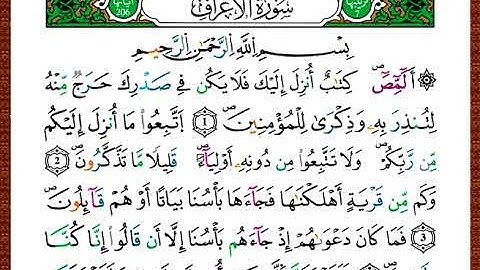 سُورَةُ الْأَعْرَافِ
آيَاتُهَا 206
بِسْمِ اللَّهِ الرَّحْمَٰنِ الرَّحِيمِ
الٓمٓصٓ ۚ كِتَابٌ أُنزِلَ إِلَيْكَ فَلَا يَكُن فِي صَدْرِكَ حَرَجٌ مِّنْهُ
لِتُنذِرَ بِهِ وَذِكْرَىٰ لِلْمُؤْمِنِينَ 1 اِتَّبِعُوا مَا أُنزِلَ إِلَيْكُم
مِّن رَّبِّكُمْ وَلَا تَتَّبِعُوا مِن دُونِهِ أَوْلِيَاءَ قَلِيلًا مَّا تَذَّكَّرُونَ 2
وَكَم مِّن قَرْيَةٍ أَهْلَكْنَاهَا فَجَاءَهَا بَأْسُنَا بَيَاتًا أَوْ هُمْ قَائِلُونَ
3 فَمَا كَانَ دَعْوَاهُمْ إِذْ جَاءَهُم بَأْسُنَا إِلَّا أَن قَالُوا إِنَّا كُنَّا